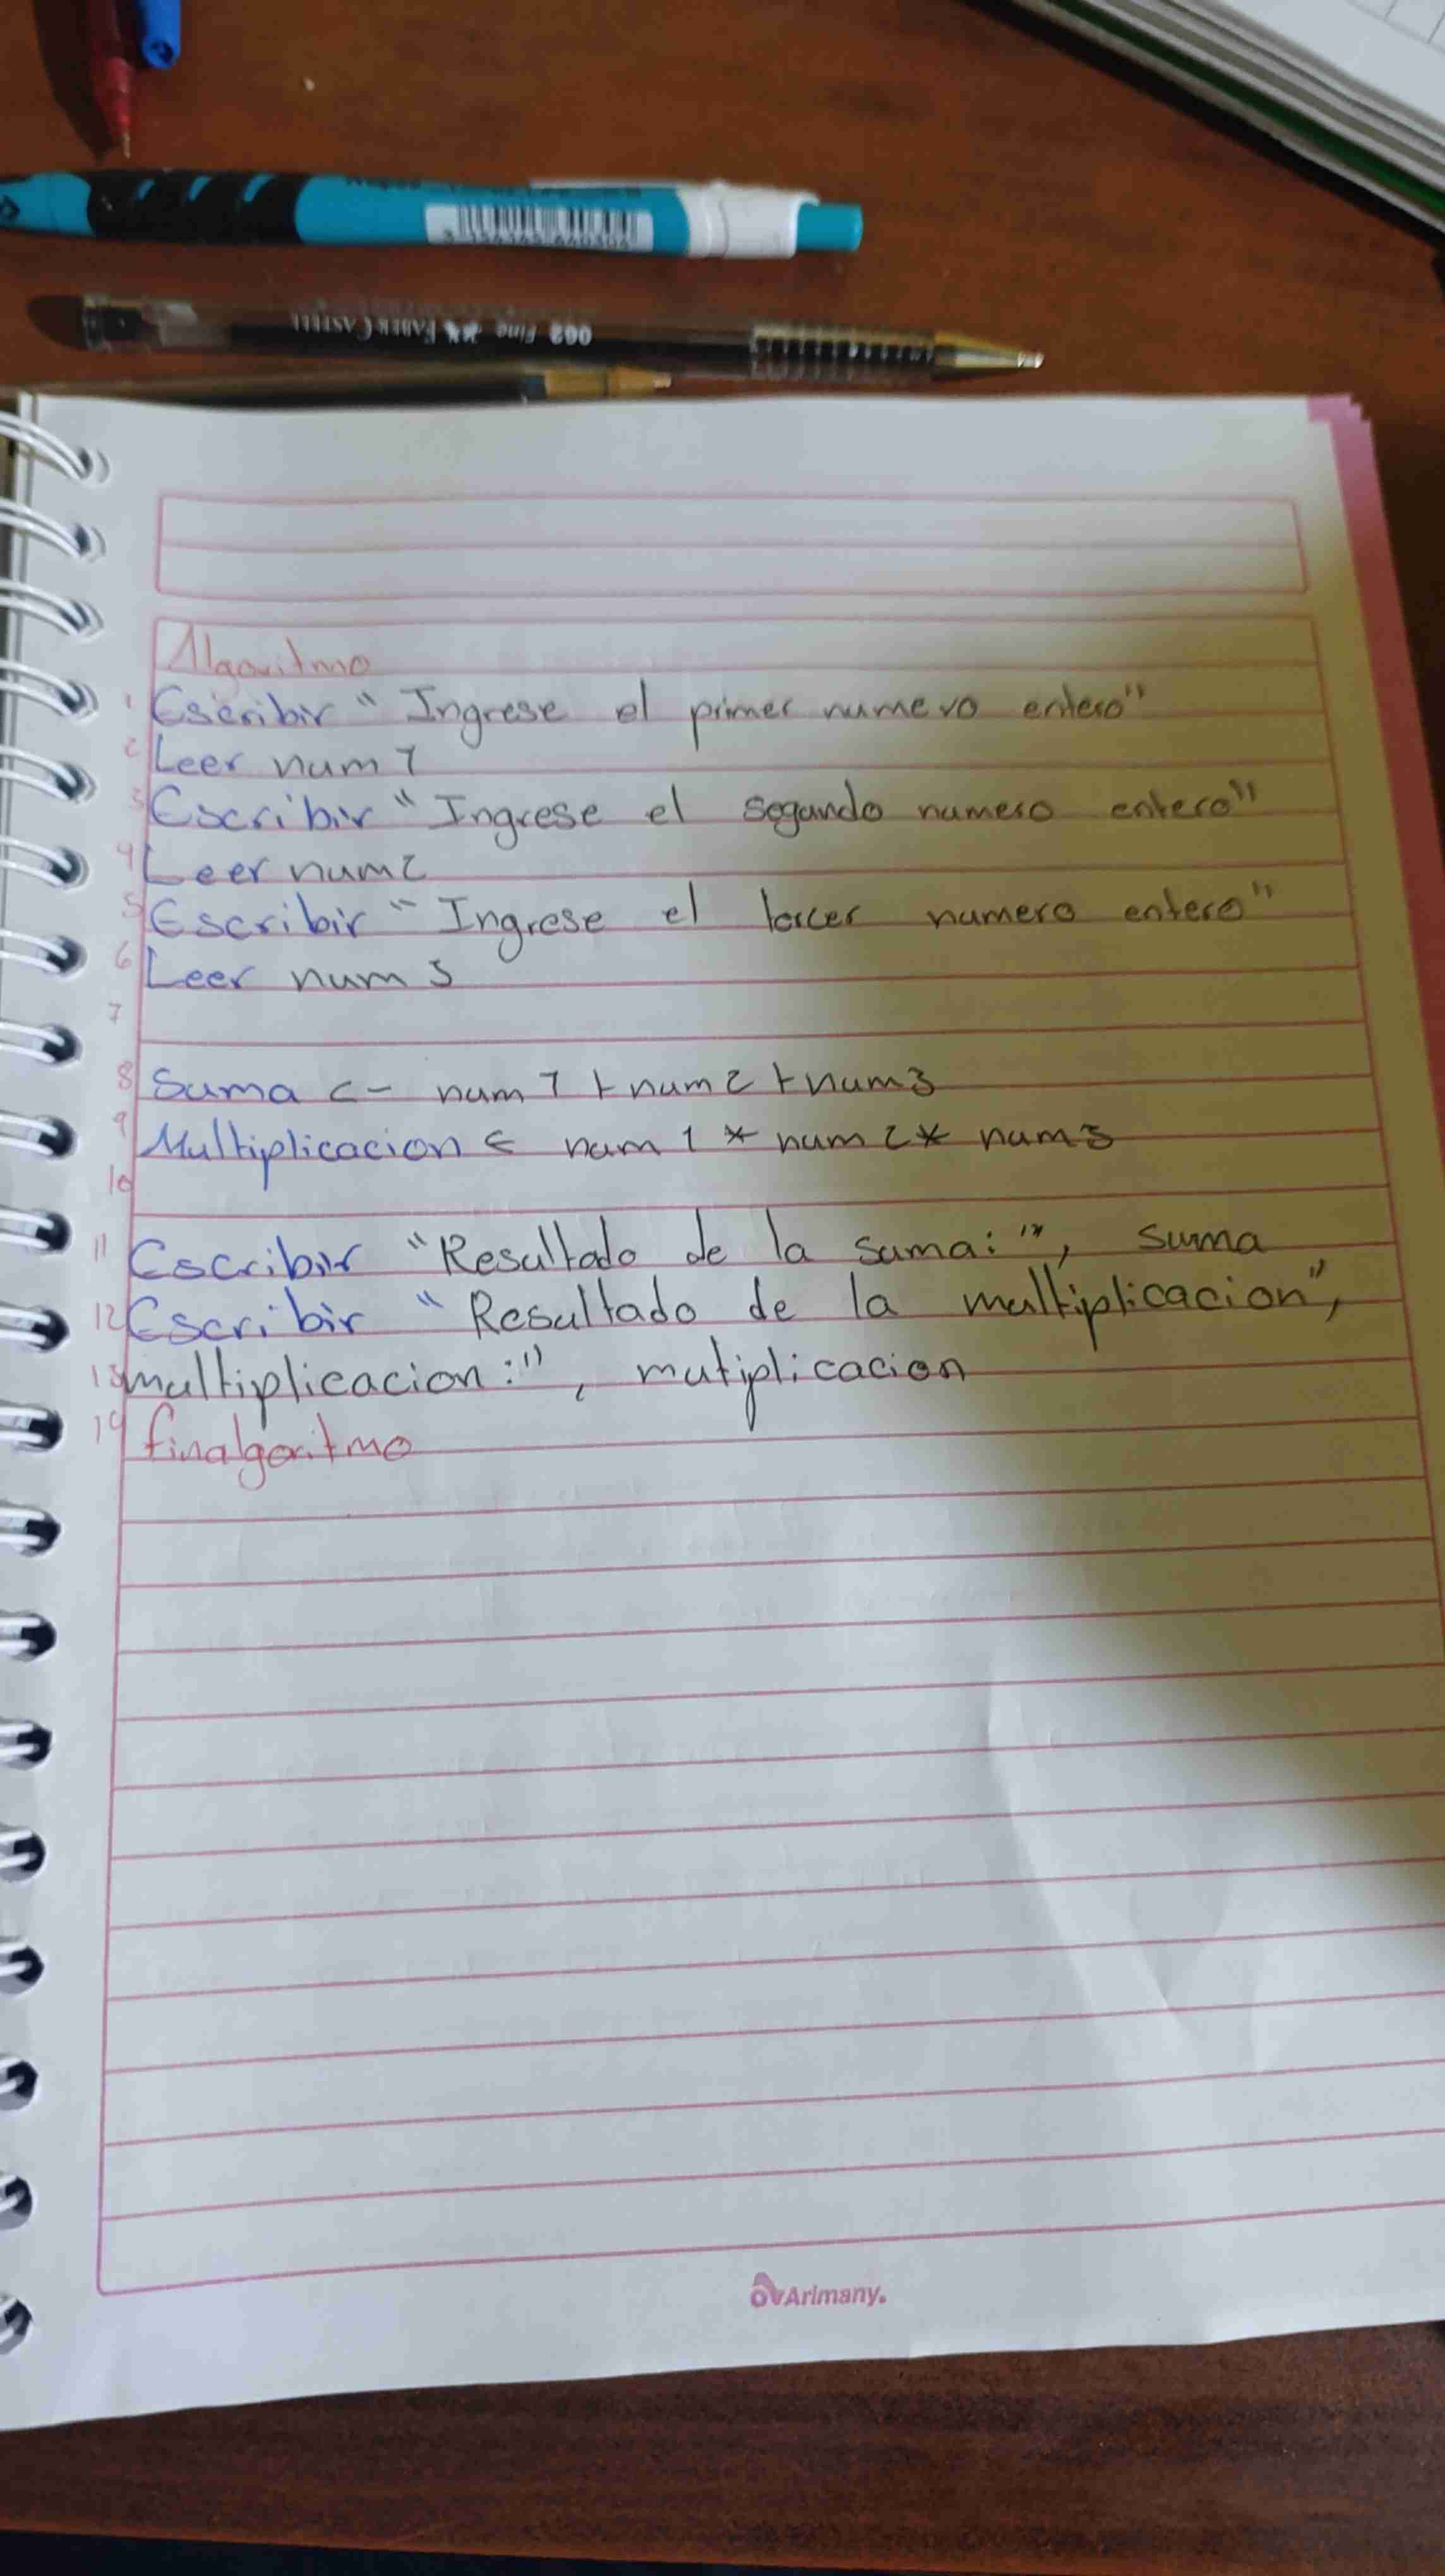 062 Fine FABER CASTELL
Algoritmo
1 Escribir "Ingrese el primer numero entero"
2 Leer num 1
3 Escribir "Ingrese el segundo numero entero"
4 Leer num2
5 Escribir "Ingrese el tercer numero entero"
6 Leer num 3
7
8 Suma <- num 1 + num2 + num3
9 Multiplicacion ← num 1 * num 2 * num3
10
11 Escribir "Resultado de la suma:", suma
12 Escribir "Resultado de la multiplicacion",
13 multiplicacion:", mutiplicacion
14 finalgoritmo
Arimany.